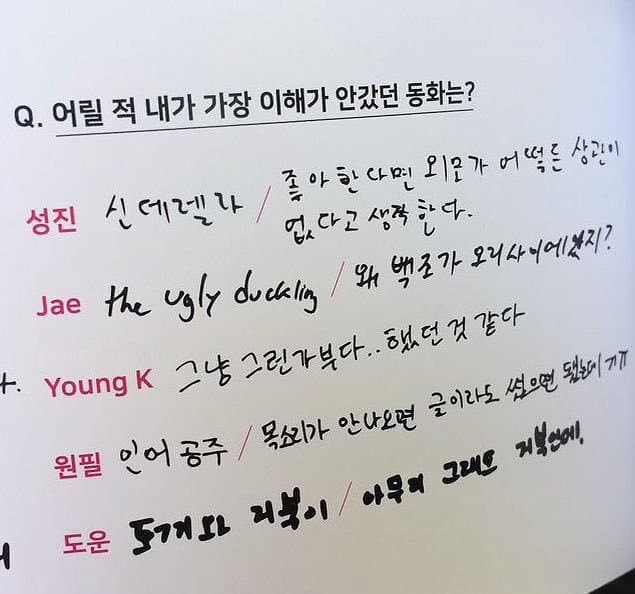 Q. 어릴 적 내가 가장 이해가 안갔던 동화는?
성진 신데렐라 / 좋아한다면 외모가 어떻든 상관이
없다고 생각한다.
Jae the ugly duckling / 왜 백조가 오리사이에있지?
Young K 그냥 그런가부다..했던것 같다
원필 인어공주 / 목소리가 안나오면 글이라도 썼으면 됐는데
도운 토끼와 거북이 / 아무리 그래도 거북인데.